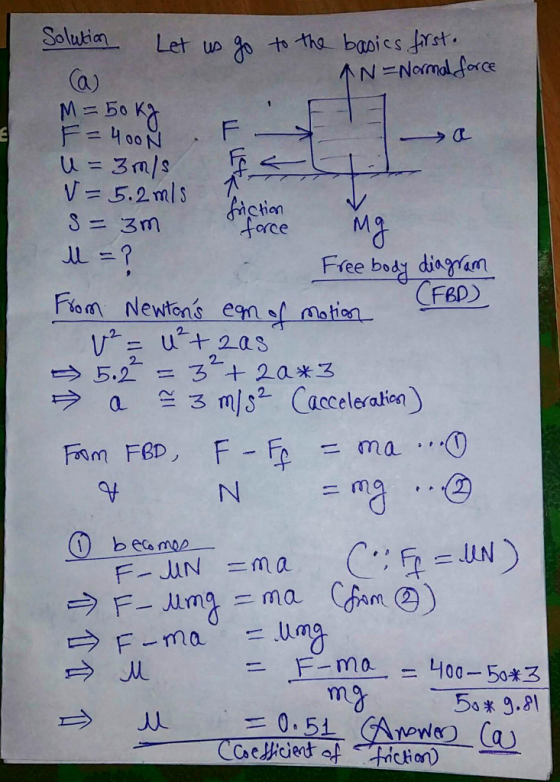 Solution Let us go to the basics first.
(a)
M = 50 Kg
F = 400N
u = 3m/s
V = 5.2m/s
S = 3m
μ = ?
N = Normal force
F
a
Ff
friction
force
Mg
Free body diagram
(FBD)
From Newton's eqn of motion
V² = u² + 2as
⇒ 5.2² = 3² + 2a*3
⇒ a ≅ 3 m/s² (acceleration)
From FBD, F - Ff = ma ...①
& N = mg ...②
① becomes
F - μN = ma (∵ Ff = μN)
⇒ F - μmg = ma (from ②)
⇒ F - ma = μmg
⇒ μ = (F - ma)/mg = (400 - 50*3)/(50*9.81)
⇒ μ = 0.51 (Answer) (a)
(coefficient of friction)